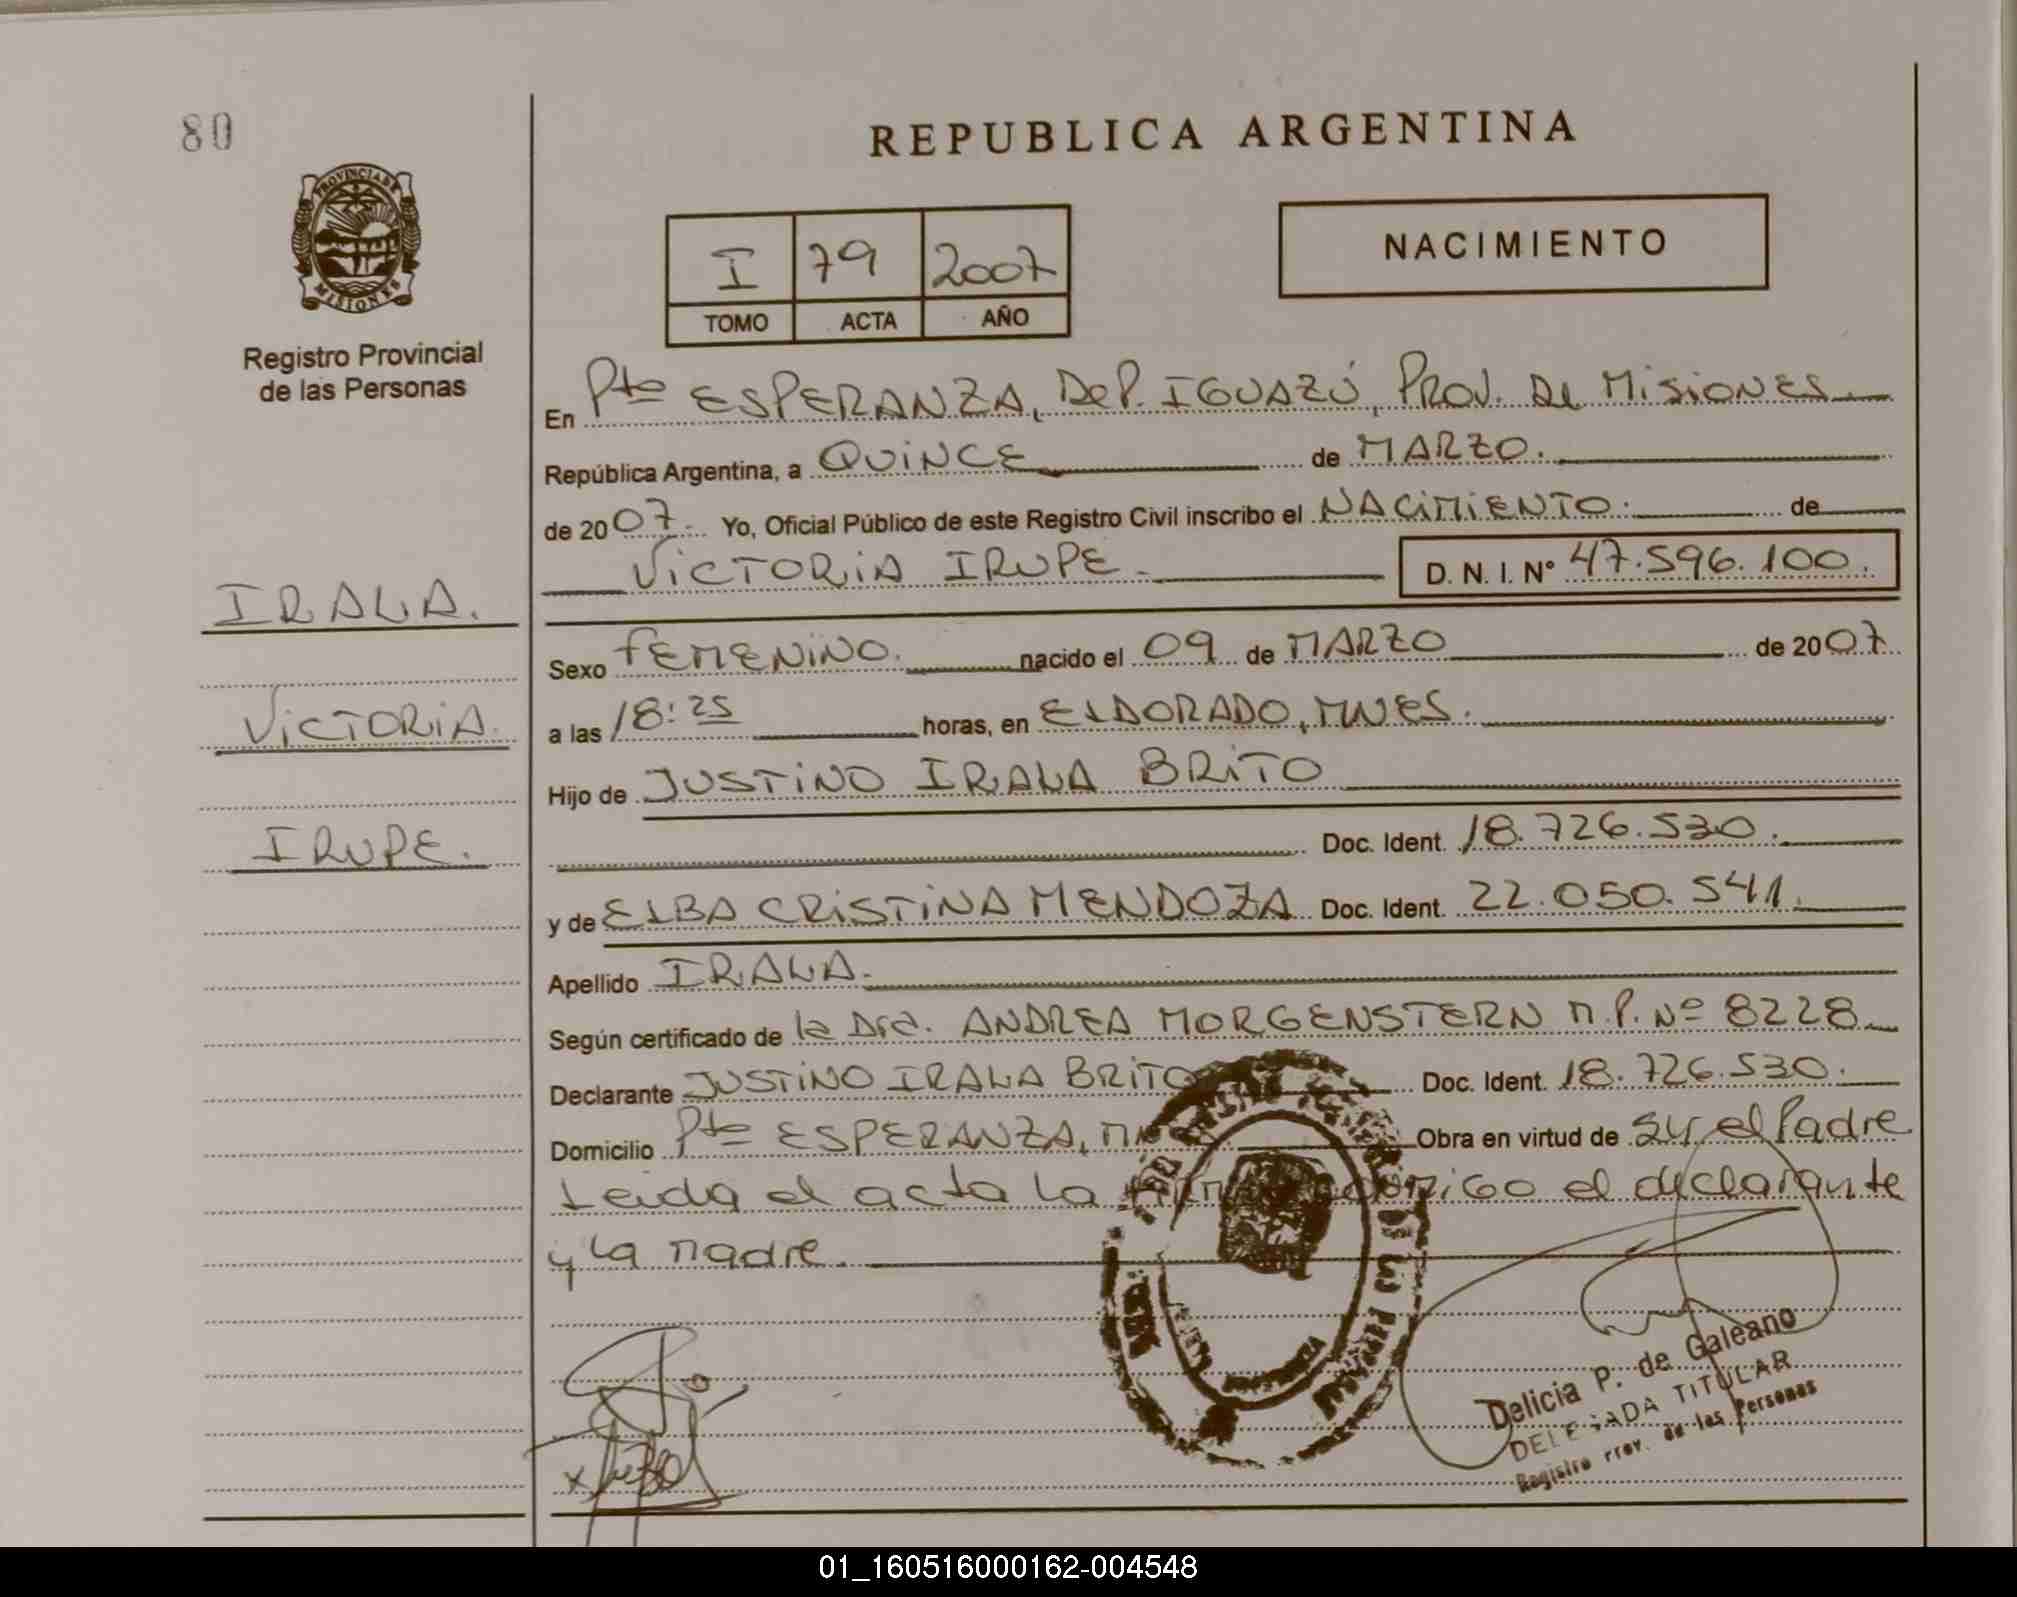 80
REPUBLICA ARGENTINA
PROVINCIA DE
MISIONES
I 79 2007
TOMO ACTA AÑO
NACIMIENTO
Registro Provincial
de las Personas
En Pto ESPERANZA, DEP. IGUAZÚ, PROV. DE MISIONES
República Argentina, a QUINCE de MARZO.
de 2007. Yo, Oficial Público de este Registro Civil inscribo el NACIMIENTO. de
VICTORIA IRUPE. D. N. I. N° 47.596.100.
IRALA.
VICTORIA.
IRUPE.
Sexo FEMENINO. nacido el 09 de MARZO de 2007.
a las 18:25 horas, en ELDORADO, MNES.
Hijo de JUSTINO IRALA BRITO
Doc. Ident. 18.726.530.
y de ELBA CRISTINA MENDOZA Doc. Ident. 22.050.541.
Apellido IRALA.
Según certificado de la Dra. ANDREA MORGENSTERN M.P. Nº 8228
Declarante JUSTINO IRALA BRITO Doc. Ident. 18.726.530.
Domicilio Pto ESPERANZA, Obra en virtud de ser el Padre
Leida el acta la el declarante
y la madre.
Delicia P. de Galeano
DELEGADA TITULAR
Registro Prov. de las Personas
01_160516000162-004548